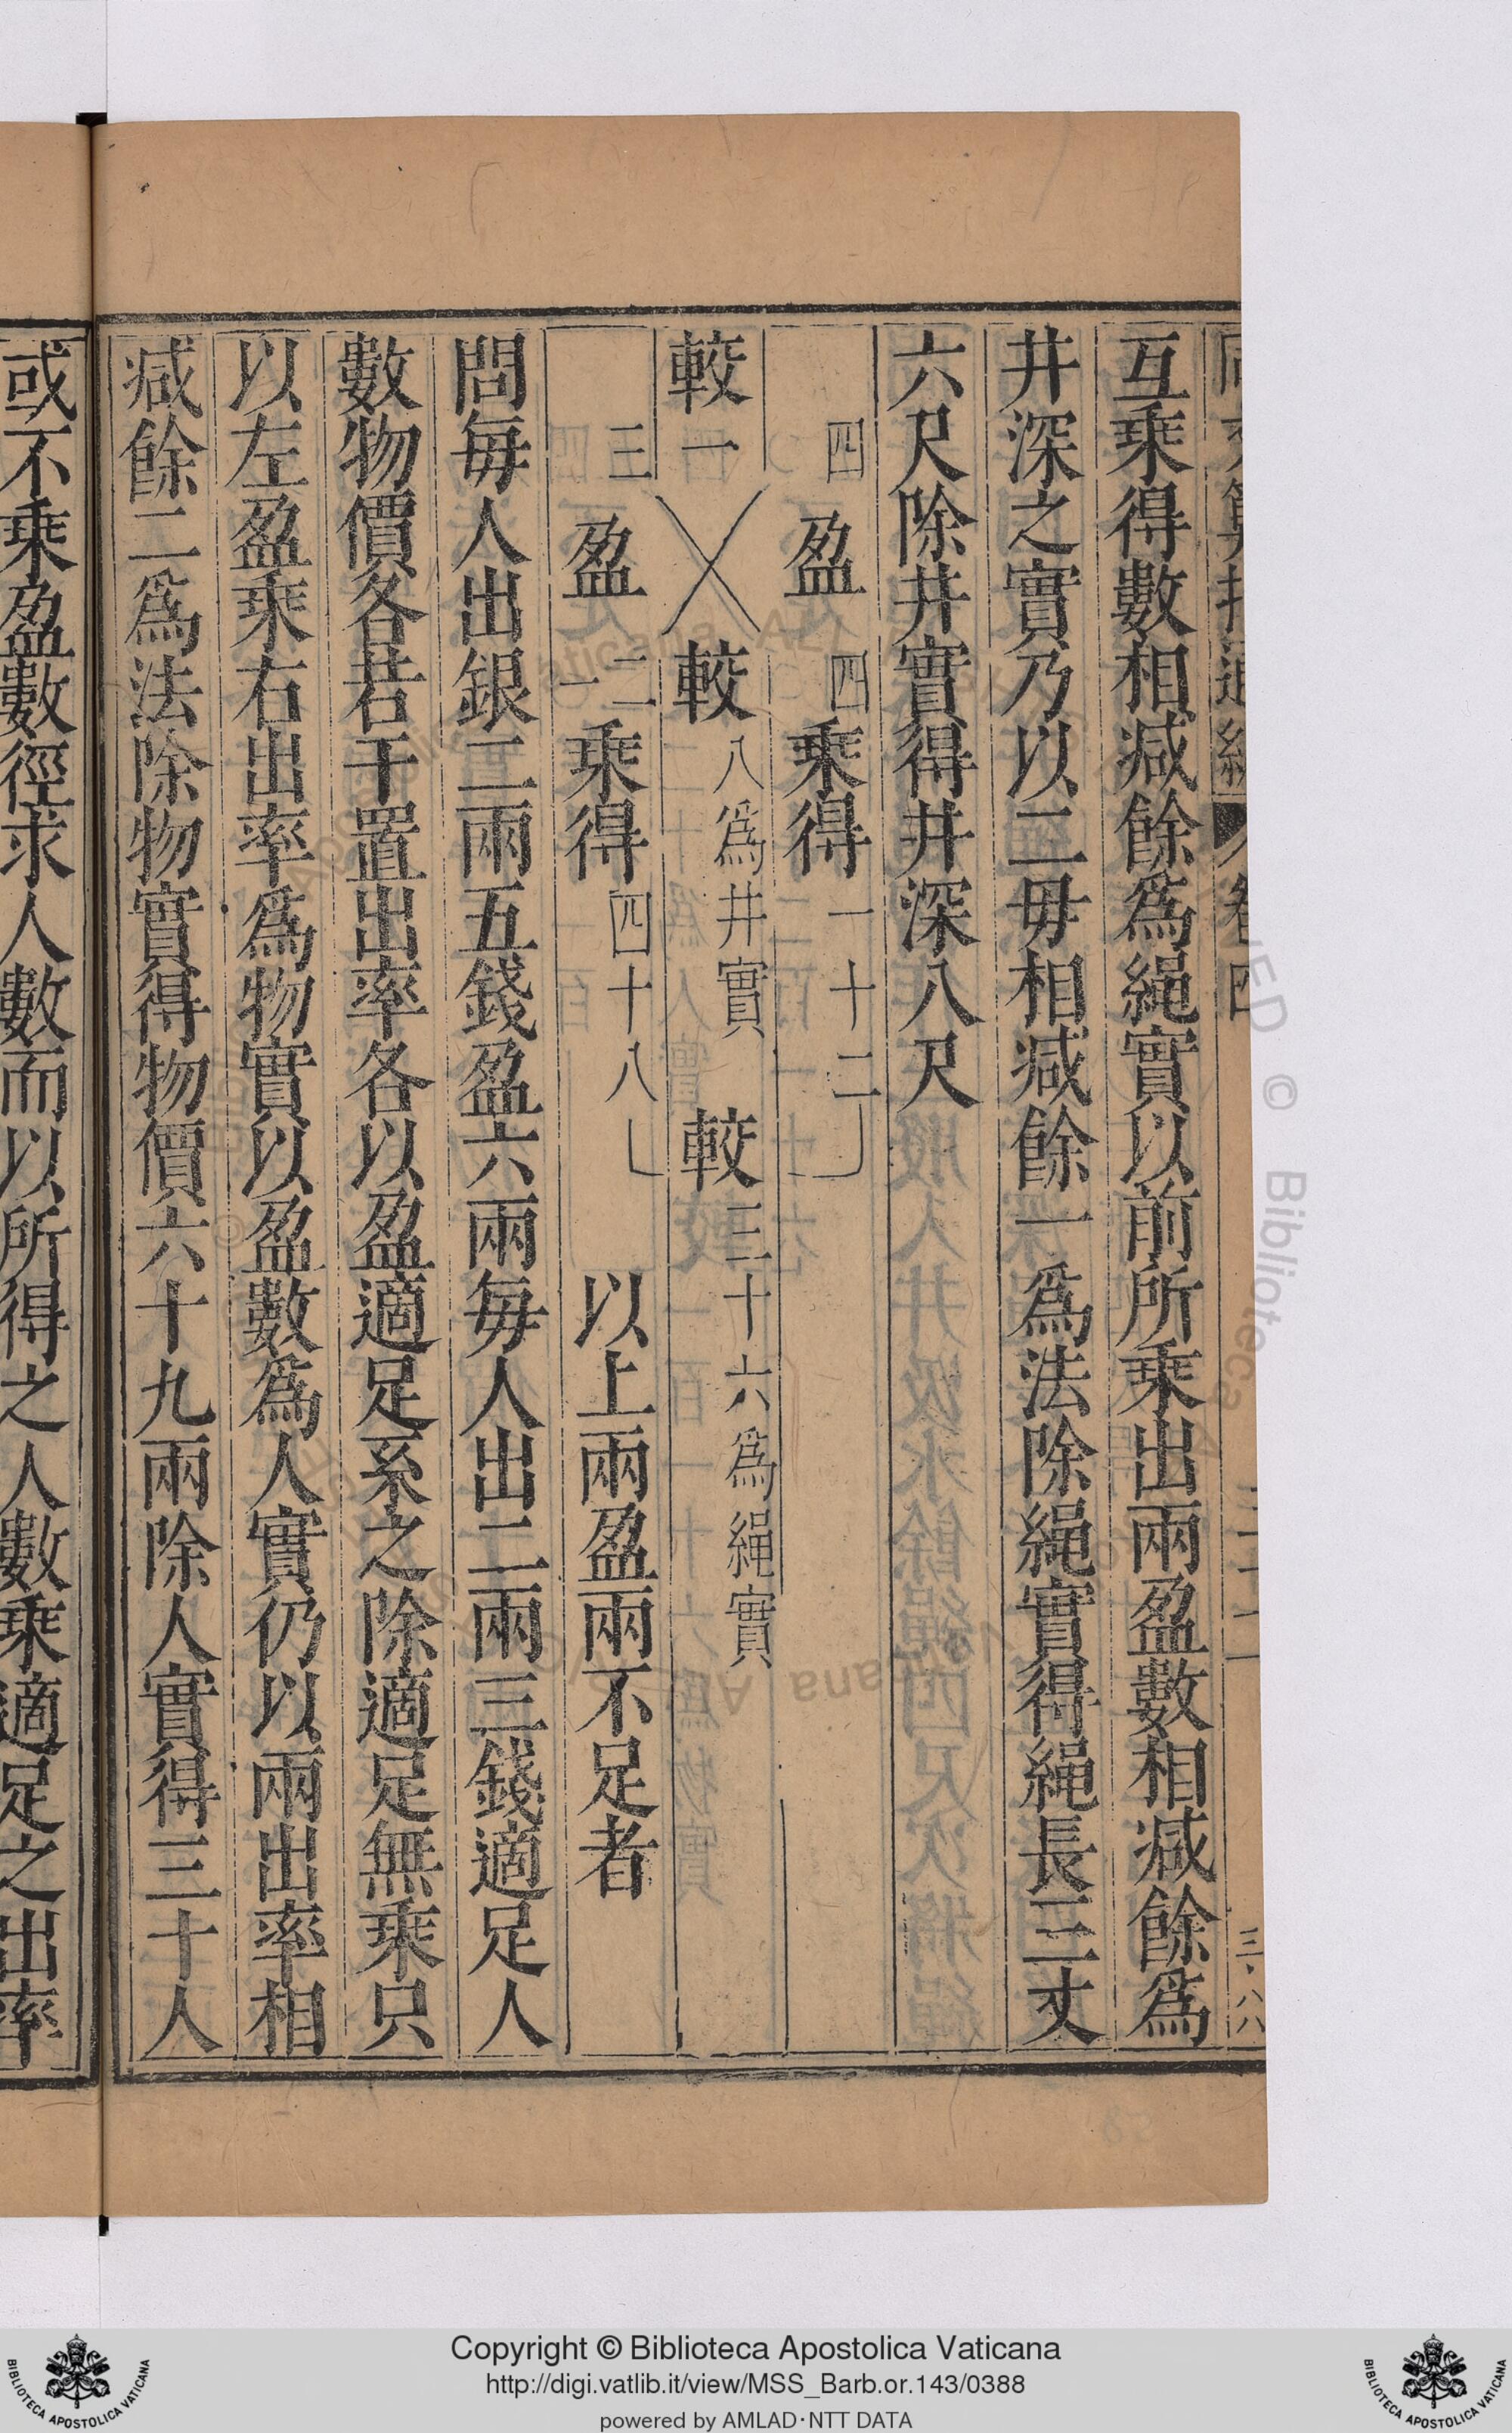 互乘得數相减餘爲繩實以前所乘出兩盈數相减餘爲
井深之實乃以三毋相减餘一爲法除繩實得繩長三丈
六尺除井實得井深八尺
四 盈 四 乘得 一十二
較 一 較 八爲井實 較 三十六爲繩實
三 盈 一二 乘得 四十八 以上兩盈兩不足者
問每人出銀二兩五錢盈六兩每人出二兩三錢適足人
數物價各若干置出率各以盈適足系之除適足無乘只
以左盈乘右出率爲物實以盈數爲人實仍以兩出率相
减餘二爲法除物實得物價六十九兩除人實得三十人
或不乘盈數徑求人數而以所得之人數乘適足之出率
Copyright © Biblioteca Apostolica Vaticana
http://digi.vatlib.it/view/MSS_Barb.or.143/0388
powered by AMLAD·NTT DATA
BIBLIOTECA APOSTOLICA VATICANA
BIBLIOTECA APOSTOLICA VATICANA